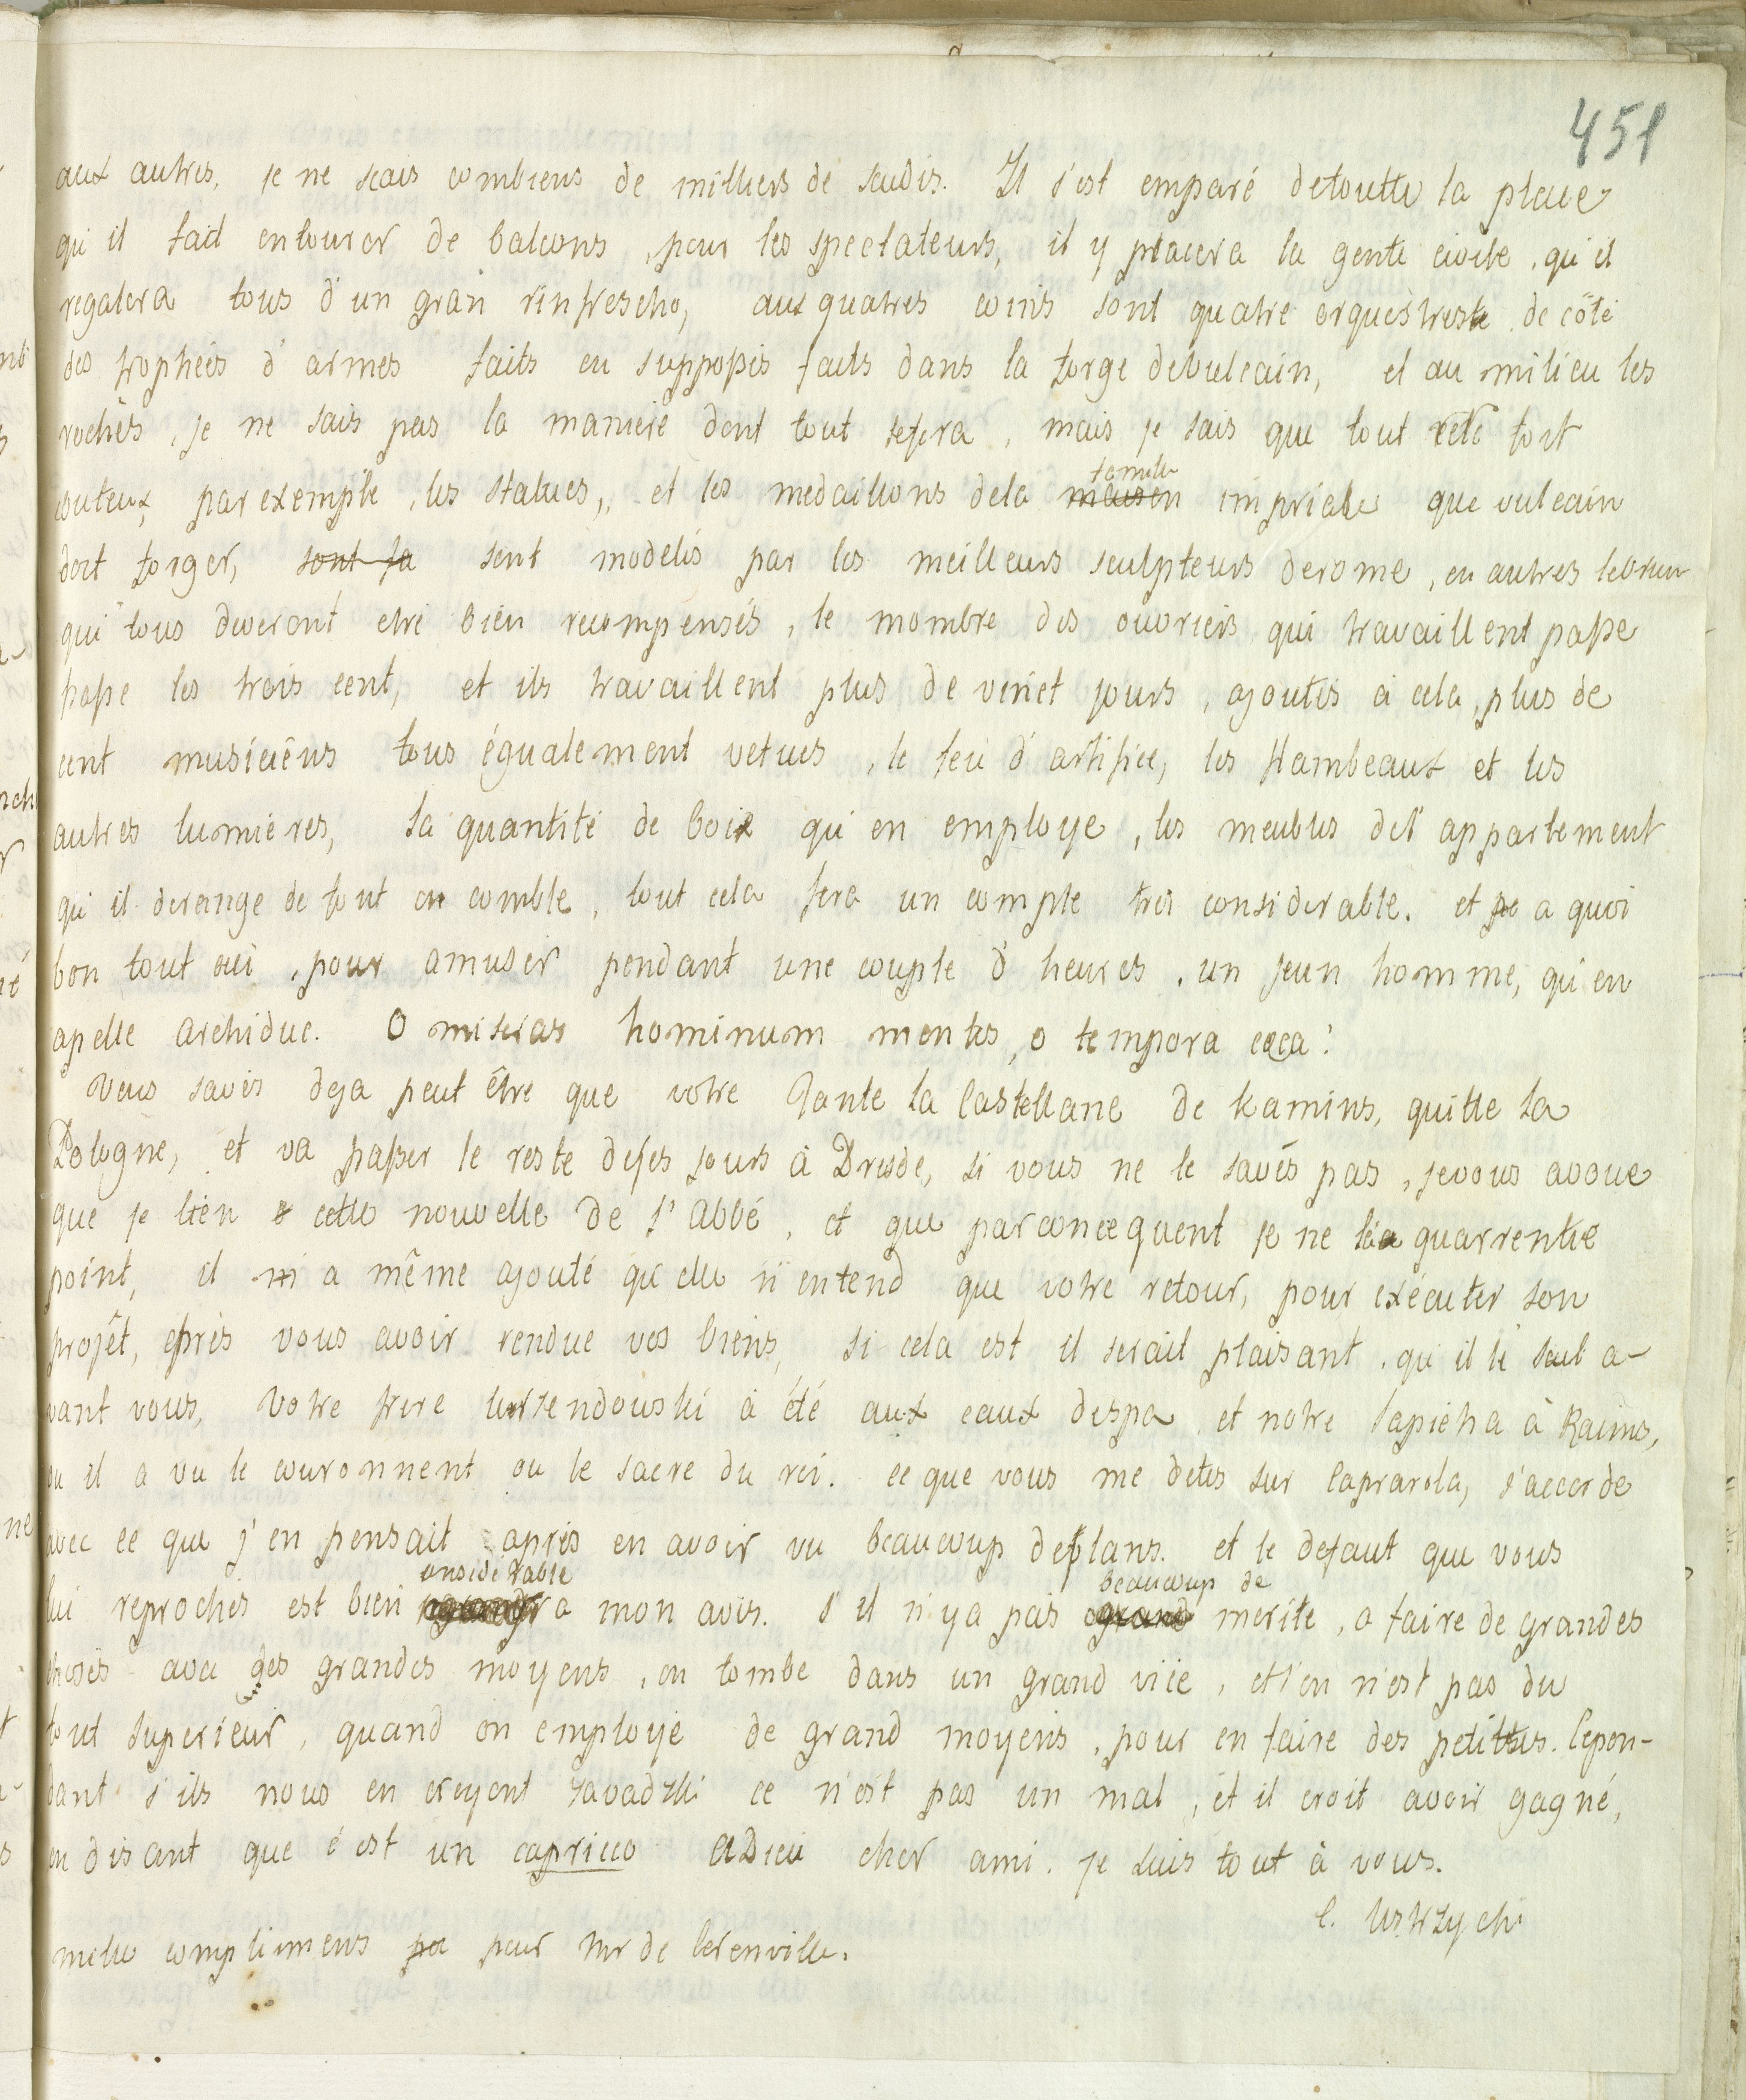 451
aux autres, je ne scais combiens de milliers de scudis. Il s'est emparé detoutte la place
qu'il fait entourer de balcons, pour les spectateurs, il y placera la gente civile, qu'il
regalera tous d'un gran rinfrescho, aux quatres coins sont quatre orquestreste de côte
des trophées d'armes faits ou supposés faits dans la forge devulcain, et au milieu les
rochès, je ne sais pas la maniere dont tout sefera, mais je sais que tout cela fort
couteux, par exemple, les statues, et les medaillons dela maison famille impriale que vulcain
doit forger, sont fa sont modelés par les meilleurs sculpteurs derome, en autres lebrun
qui tous deveront etre bien recompensés, le mombre des ouvriers qui travaillent passe
passe les trois cent, et ils travaillent plus de vinct jours, ajoutés à cela, plus de
cent musiciêns tous égualement vetues, le feu d'artifice, les flambeaux et les
autres lumieres, la quantité de bois qu'en employe, les meubles del'appartement
qu'il derange de font en comble, tout cela fera un compte tres considerable. et a quoi
bon tout ceci, pour amuser pendant une couple d'heures, un jeun homme, qu'en
apelle archiduc. O miseras hominum mentes, o tempora coeca!
Vous savés deja peut être que votre Tante la Castellane de Kamins, quitte la
Pologne, et va passer le reste deses jours à Dresde, si vous ne le savés pas, jevous avoue
que je tien cette nouvelle de l'Abbé, et que parconcequent je ne la guarrentie
point, il m'a même ajouté qu'elle n'entend que votre retour, pour exécuter son
projêt, epris vous avoir rendue vos biens, si cela est il serait plaisant, qu'il le saut a-
vant vous, Votre frere à été aux eaux despa et notre Sapieha à Raims,
ou il a vu le couronnent ou le sacre du roi. ce que vous me dites sur Caprarola, s'accorde
avec ce que j'en pensait après en avoir vu beaucoup deplans. et le defaut que vous
lui reprochés est bien onsidérable a mon avis. s'il n'ya pas grand beaucoup de merite, a faire de grandes
choses avec des grandes moyens, on tombe dans un grand vice, et l'on n'est pas du
tout superieur, quand on employe de grand moyens, pour en faire des petittes. Cepen-
dant s'ils nous en croyent Zavadzki ce n'est pas un mal, et il croit avoir gagné,
en disant que c'est un capricco adieu cher ami. je suis tout à vous.
C. Ustrzycki
mille complimens pour Mr de Berenville.